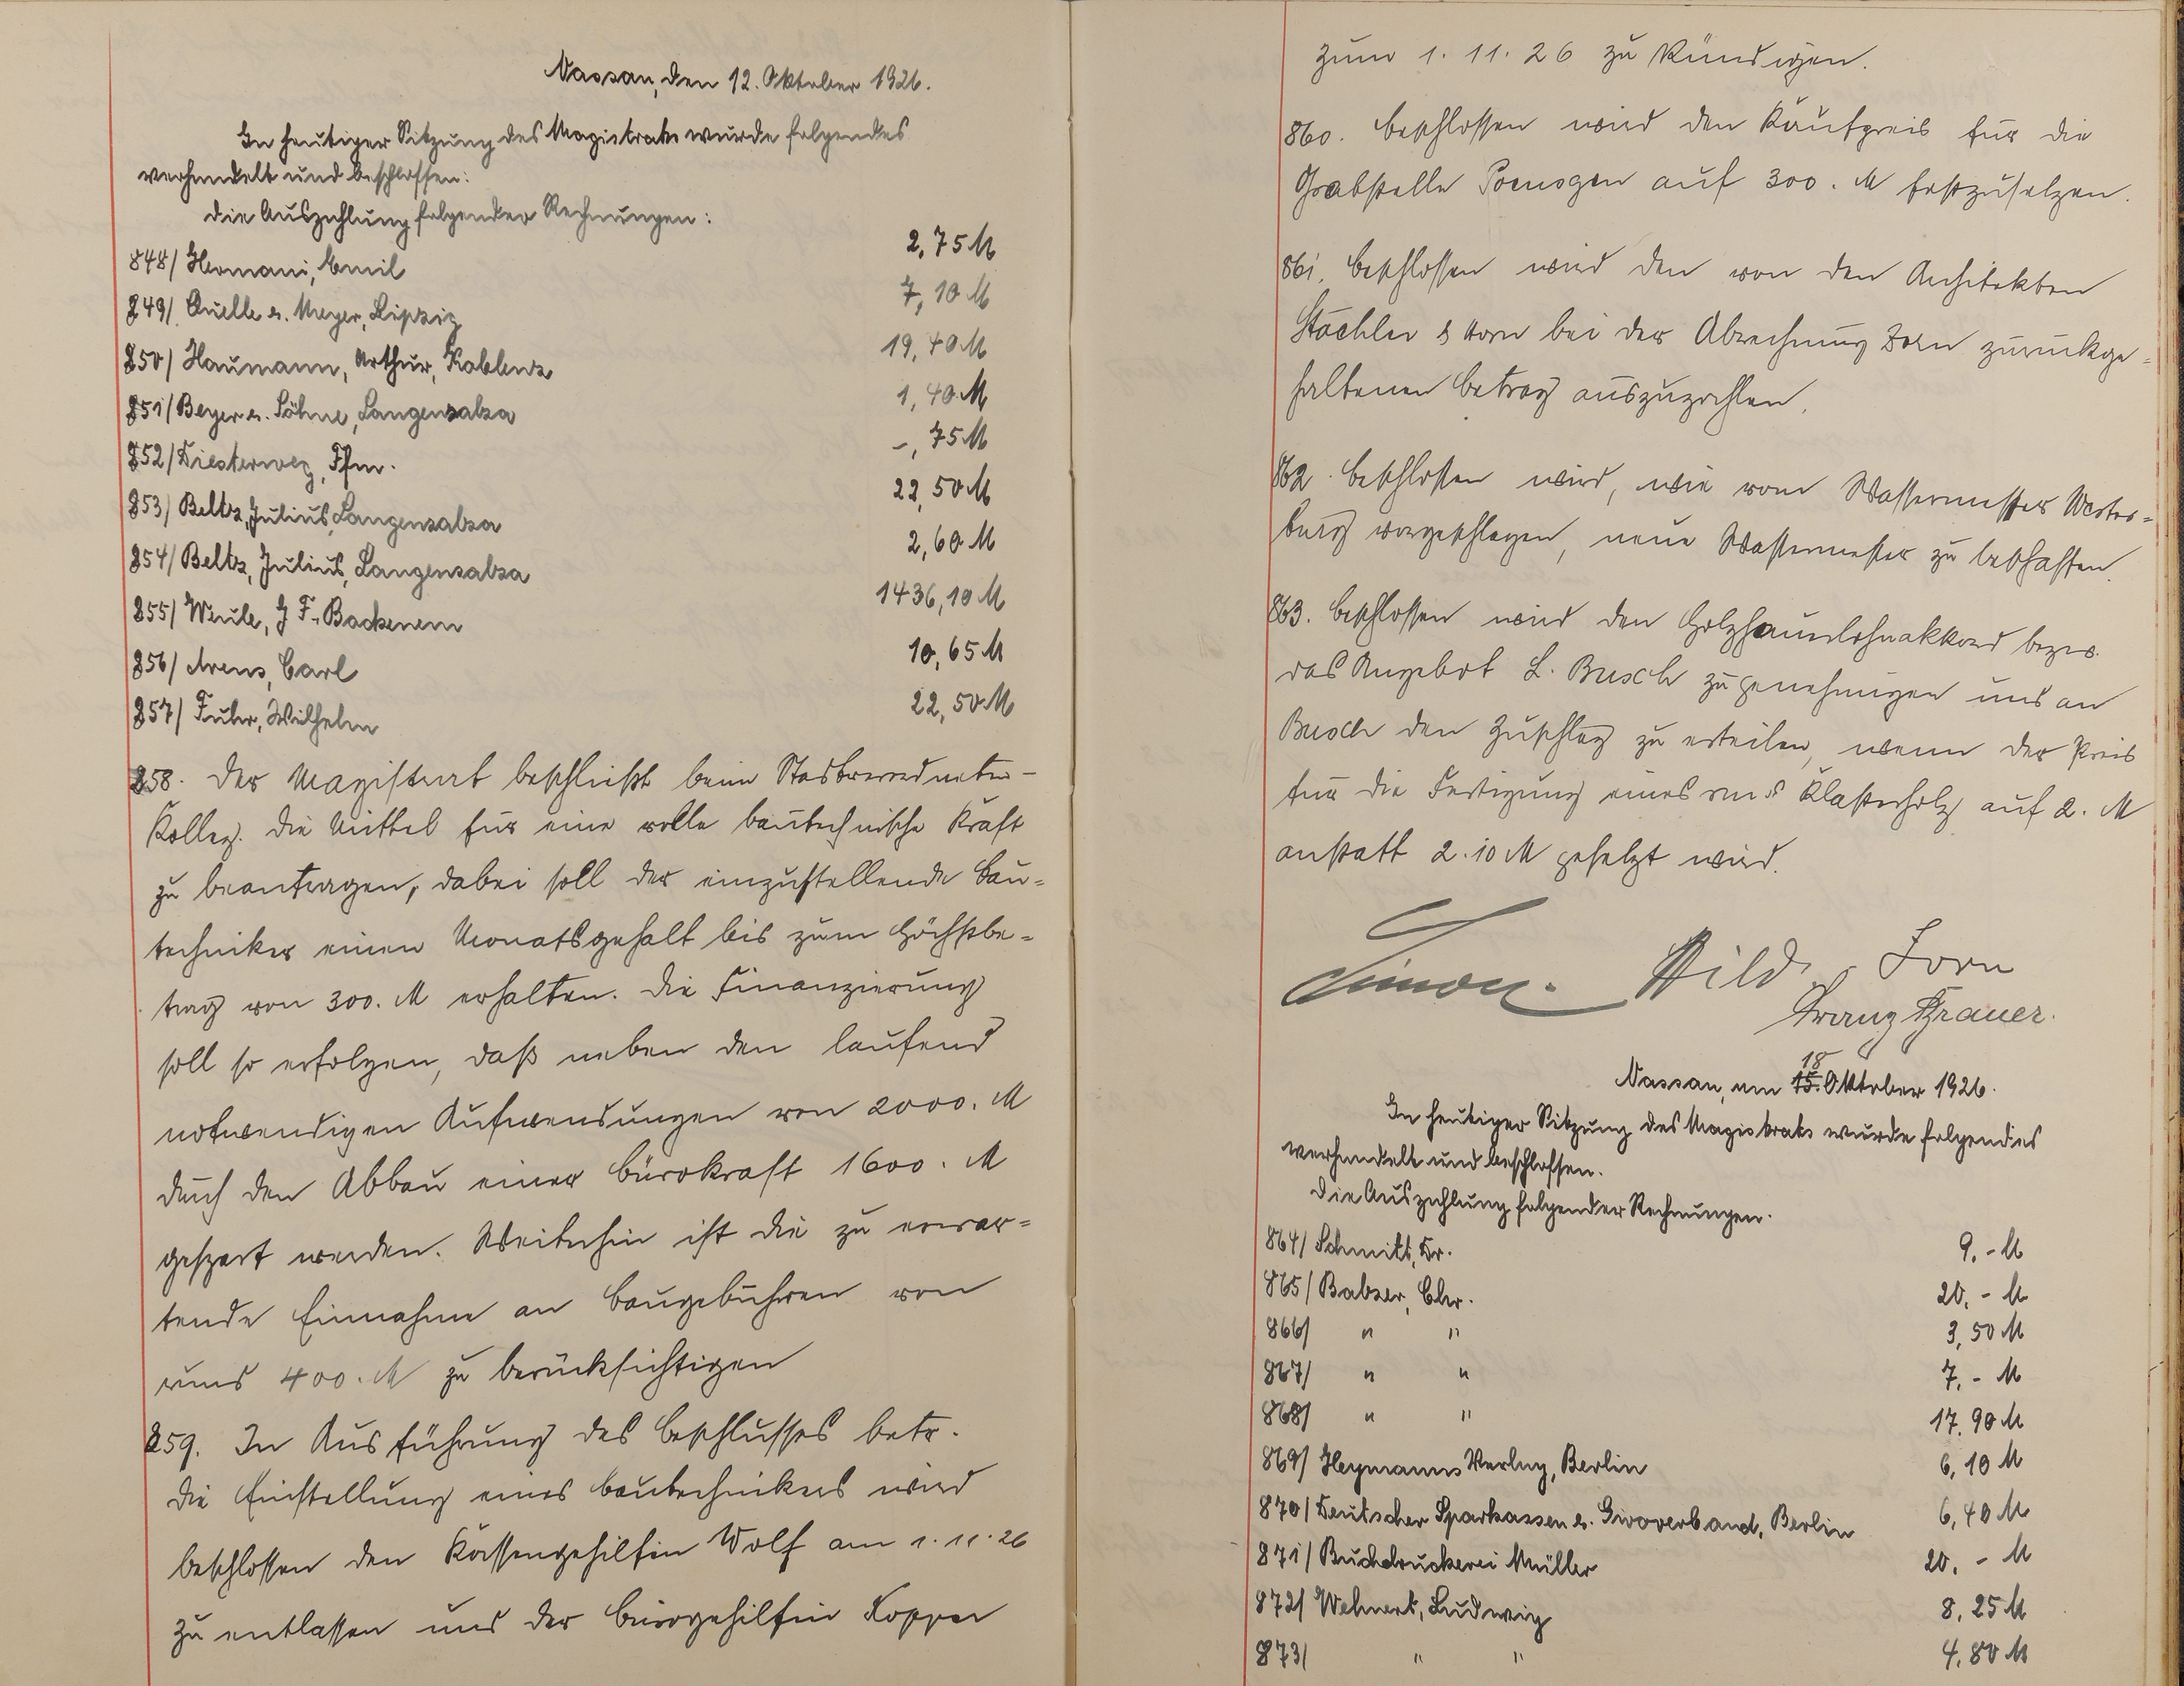 Nassau, den 12. Oktober 1926.
In heutiger Sitzung des Magistrats wurde folgendes
verhandelt und beschlossen:
Die Auszahlung folgender Rechnungen:
848/ Hermani, Emil 2,75 M
849/ Quelle u. Meyer, Leipzig 7,10 M
850/ Haumann, Arthur, Koblenz 19,40 M
851/ Beyer u. Söhne, Langensalza 1,40 M
852/ Diesterweg, Ffm. -,75 M
853/ Beltz, Julius, Langensalza 22,50 M
854/ Beltz, Julius, Langensalza 2,60 M
855/ Weule, J F. Bockenem 1436,10 M
856/ Arens, Carl 10,65 M
857/ Fuhr, Wilhelm 22,50 M
858. Der Magistrat beschließt beim Stadtverordneten-
Kolleg. die Mittel für eine volle bautechnische Kraft
zu beantragen, dabei soll der einzustellende Bau=
techniker einen Monatsgehalt bis zum Höchstbe=
trag von 300. M erhalten. Die Finanzierung
soll so erfolgen, daß neben den laufend
notwendigen Aufwendungen von 2000. M
durch den Abbau einer Bürokraft 1600. M
gespart werden. Weiterhin ist die zu erwar=
tende Einnahme an Baugebühren von
rund 400. M zu berücksichtigen
859. In Ausführung des Beschlusses betr.
die Einstellung eines Bautechnikers wird
beschlossen den Kassengehilfin Wolf am 1. 11. 26
zu entlassen und der Bürogehilfin
zum 1. 11. 26 zu kündigen.
860. Beschlossen wird den Kaufpreis für die
Grabstelle Poensgen auf 300. M festzusetzen.
861. Beschlossen wird den von den Architekten
Stächler & Horn bei der Abrechnung Zorn zurückge=
haltenen Betrag auszuzahlen.
862. Beschlossen wird, wie vom Wassermesser Wester=
burg vorgeschlagen, neue Wassermesser zu beschaffen.
863. Beschlossen wird den Holzhauerlohnakkord bezw.
das Angebot L. Busch zu genehmigen und an
Busch den Zuschlag zu erteilen, wenn der Preis
für die Fertigung eines rm Klafterholz auf 2. M
anstatt 2.10 M gesetzt wird.
Simon. Hild Zorn
Franz Brauer.
18
Nassau, am 15. Oktober 1926.
In heutiger Sitzung des Magistrats wurde folgendes
verhandelt und beschlossen.
Die Auszahlung folgender Rechnungen.
864/ Schmitt, Fr. 9.- M
865/ Balzer, Chr. 20.- M
866/ " " 3,50 M
867/ " " 7.- M
868/ " " 17.90 M
869/ Heymanns Verlag, Berlin 6,10 M
870/ Deutscher Sparkassen u. Giroverband, Berlin 6,40 M
871/ Buchdruckerei Müller 20.- M
872/ Wehnert, Ludwig 8,25 M
873/ " " 4,80 M